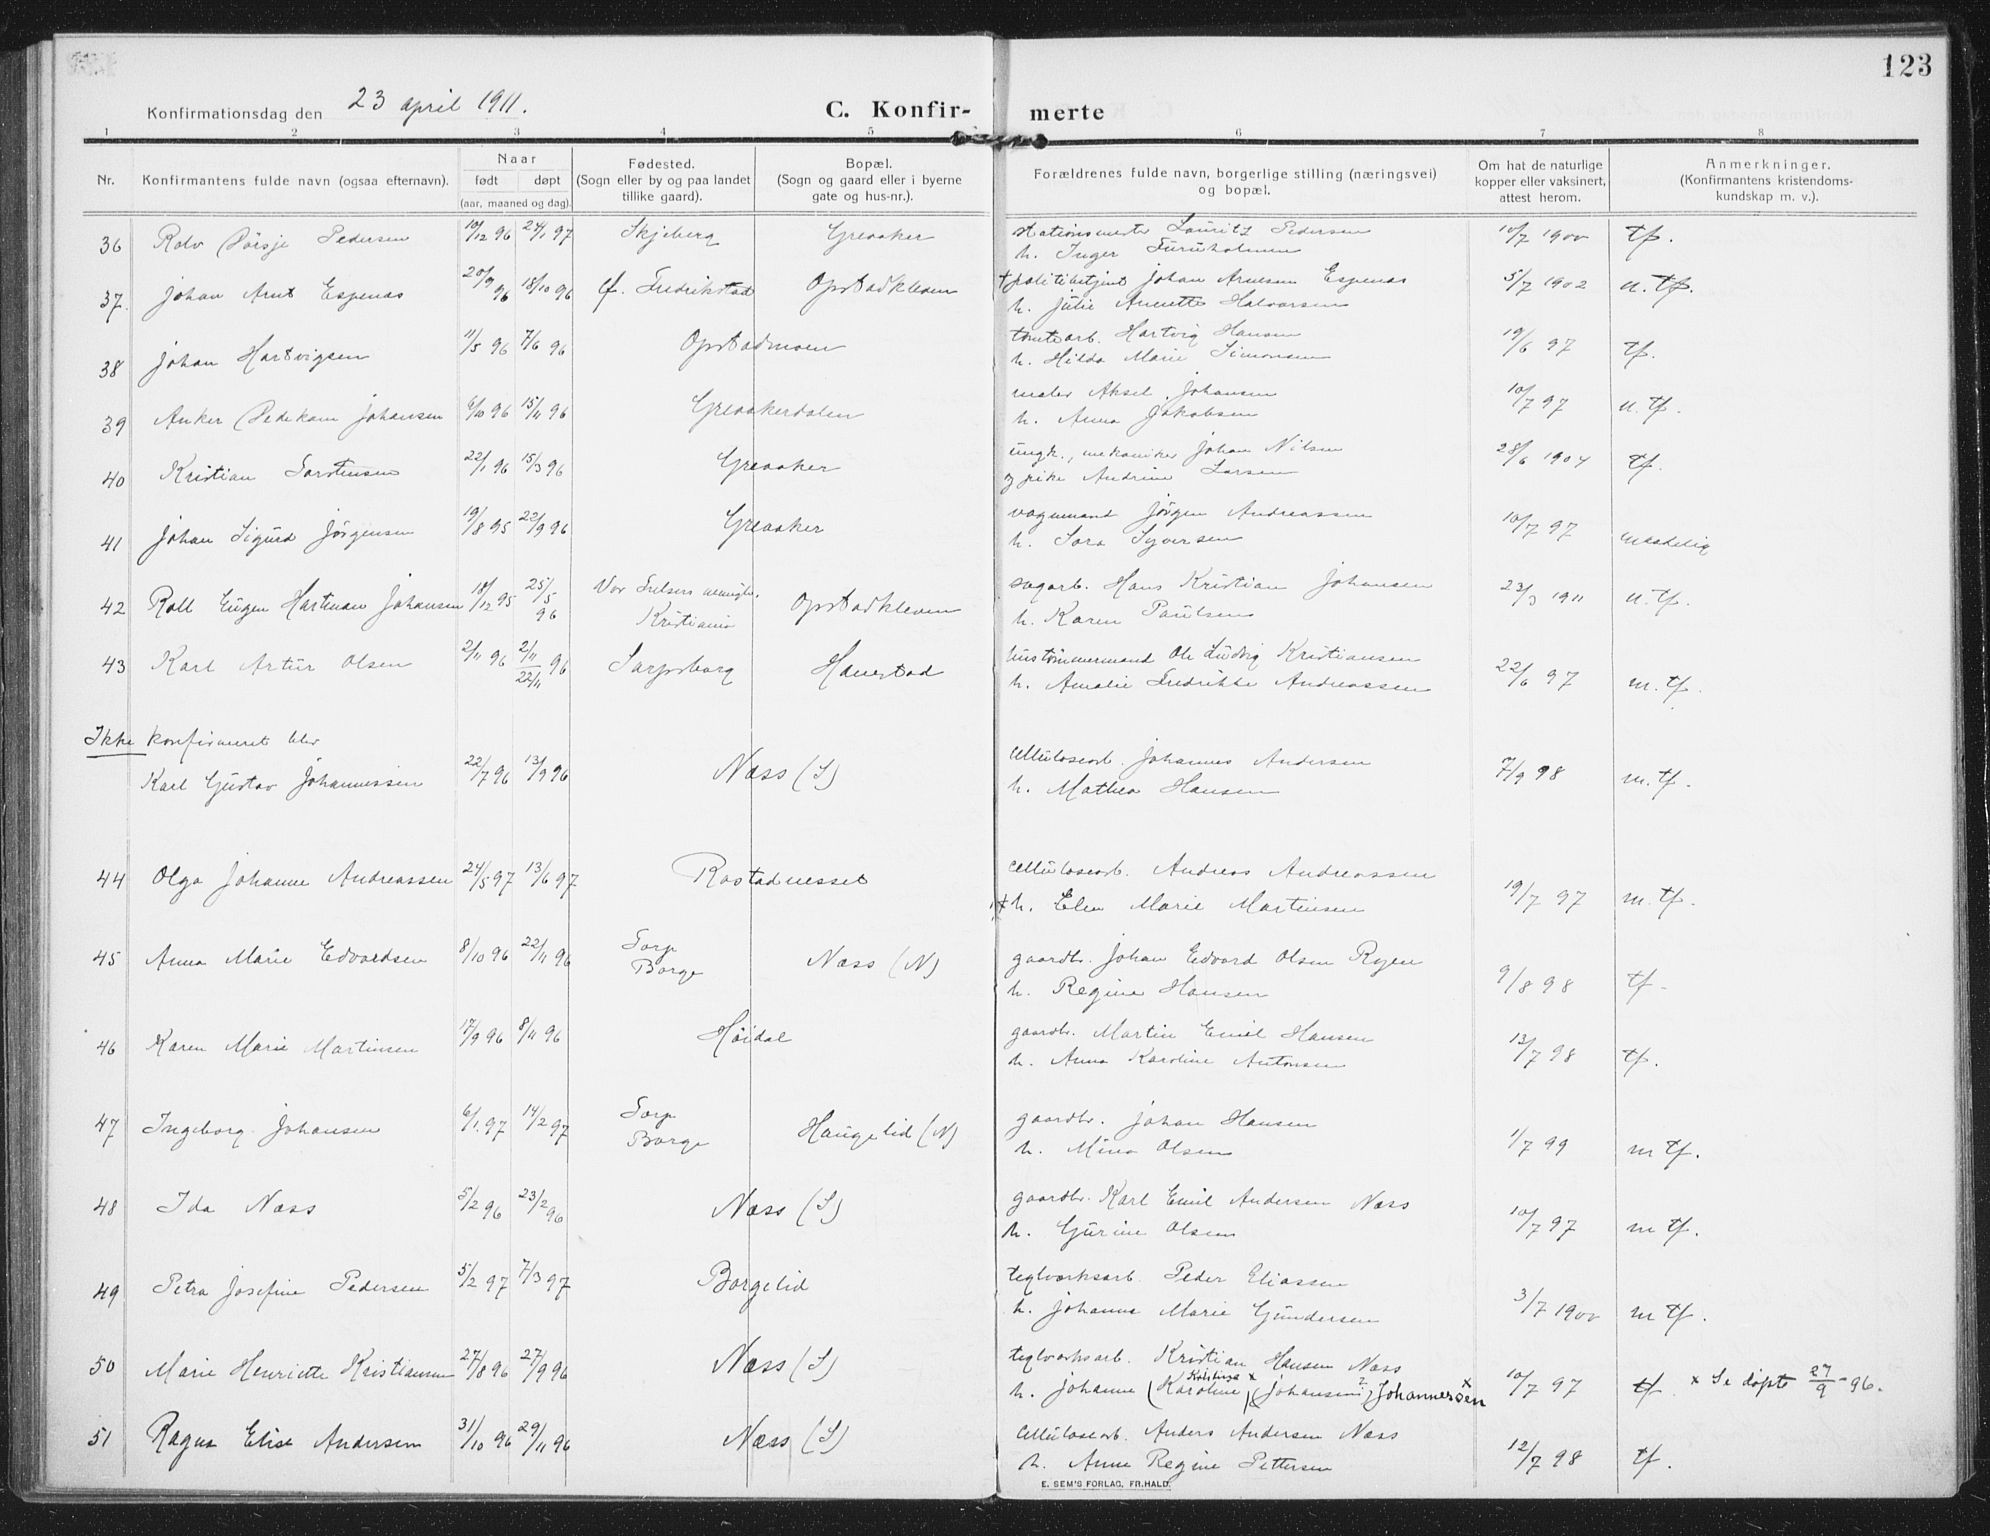 123
Konfirmationsdag den 23 april 1911.
C. Konfir- merte
1 2 3 4 5 6 7 8
Nr. Konfirmantens fulde navn (ogsaa efternavn). Naar født døpt (aar, maaned og dag). Fødested. (Sogn eller by og paa landet tillike gaard). Bopæl. (Sogn og gaard eller i byerne gate og hus-nr.). Forældrenes fulde navn, borgerlige stilling (næringsvei) og bopæl. Om hat de naturlige kopper eller vaksinert, attest herom. Anmerkninger. (Konfirmantens kristendoms- kundskap m. v.).
36 Rolv 10/12 96 24/1 97 Skjeberg Greaaker stationsmester Lauritz Pedersen 10/7 1900 tf.
Pedersen h. Inger Furuholmen
37. Johan Arnt Espenæs 20/9 96 18/10 96 Fredrikstad Opstadkleven † politibetjent Johan Arnesen Espenæs 5/7 1902 u. tf.
h. Julie Annette Halvorsen
38 Johan Hartvigsen 11/5 96 7/6 96 Opstadmoen tomtearb. Hartvig Hansen 19/6 97 tf.
h. Hilda Marie Simonsen
39 Anker Johansen 6/10 96 15/11 96 Greaakerdalen maler Aksel Johansen 10/7 97 u. tf.
h. Anna Jakobsen
40 Kristian Torstensen 22/1 96 15/3 96 Greaaker ungk., mekaniker Johan Nilsen 28/6 1904 tf.
og pike Andrine Larsen
41 Johan Sigurd Jørgensen 19/8 95 22/9 96 Greaaker vognmand Jørgen Andreassen 10/7 97 maadelig
h. Sara Syversen
42 Rolf Eugen Hartman Johansen 18/12 95 25/5 96 Vor Frelsers menigh. Kristiania Opstadkleven sagarb. Hans Kristian Johansen 23/3 1911 u. tf.
h. Karen Paulsen
43 Karl Artur Olsen 2/11 96 2/11 22/11 96 Sarpsborg Hanestad hustømmermand Ole Ludvig Kristiansen 22/6 97 m. tf.
h. Amalie Fredrikke Andreassen
Ikke konfirmeret blev
Karl Gustav Johannessen 22/7 96 13/9 96 Næss (S) celluloseorb. Johannes Andersen 7/9 98 m. tf.
h. Mathea Hansen
44 Olga Johanne Andreassen 24/5 97 13/6 97 Rostadnesset cellulosearb. Andreas Andreassen 19/7 97 m. tf.
† h. Elen Marie Martinsen
45 Anna Marie Edvardsen 8/10 96 22/11 96 Torp Borge Næss (N) gaardbr. Johan Edvard Olsen Ryen 9/8 98 tf.
h. Regine Hansen
46 Karen Marie Martinsen 17/9 96 8/11 96 Høidal gaardbr. Martin Emil Hansen 13/7 98 tf.
h. Anna Karoline Antonsen
47 Ingeborg Johansen 6/1 97 14/2 97 Torp Borge Haugelid (N) gaardbr. Johan Hansen 1/7 99 m tf.
h. Mina Olsen
48 Ida Næss 5/2 96 23/2 96 Næss (S) gaardbr. Karl Emil Andersen Næss 10/7 97 m tf.
h. Gurine Olsen
49 Petra Josefine Pedersen 5/2 97 7/3 97 Borgelid teglverksarb. Peder Eliassen 3/7 1900 m tf.
h. Johanna Marie Gundersen
50 Marie Henriette Kristiansen 27/8 96 27/9 96 Næss (S) teglverksarb. Kristian Hansen Næss 10/7 97 tf. x Se døpte 27/9-96.
h. Johanne (Karoline) x (Johansen ?) Johannessen x
51 Ragna Elise Andersen 31/10 96 29/11 96 Næss (S) cellulosearb. Anders Andersen Næss 12/7 98 tf.
h. Anna Regine Pettersen
E. SEM'S FORLAG, FR.HALD.